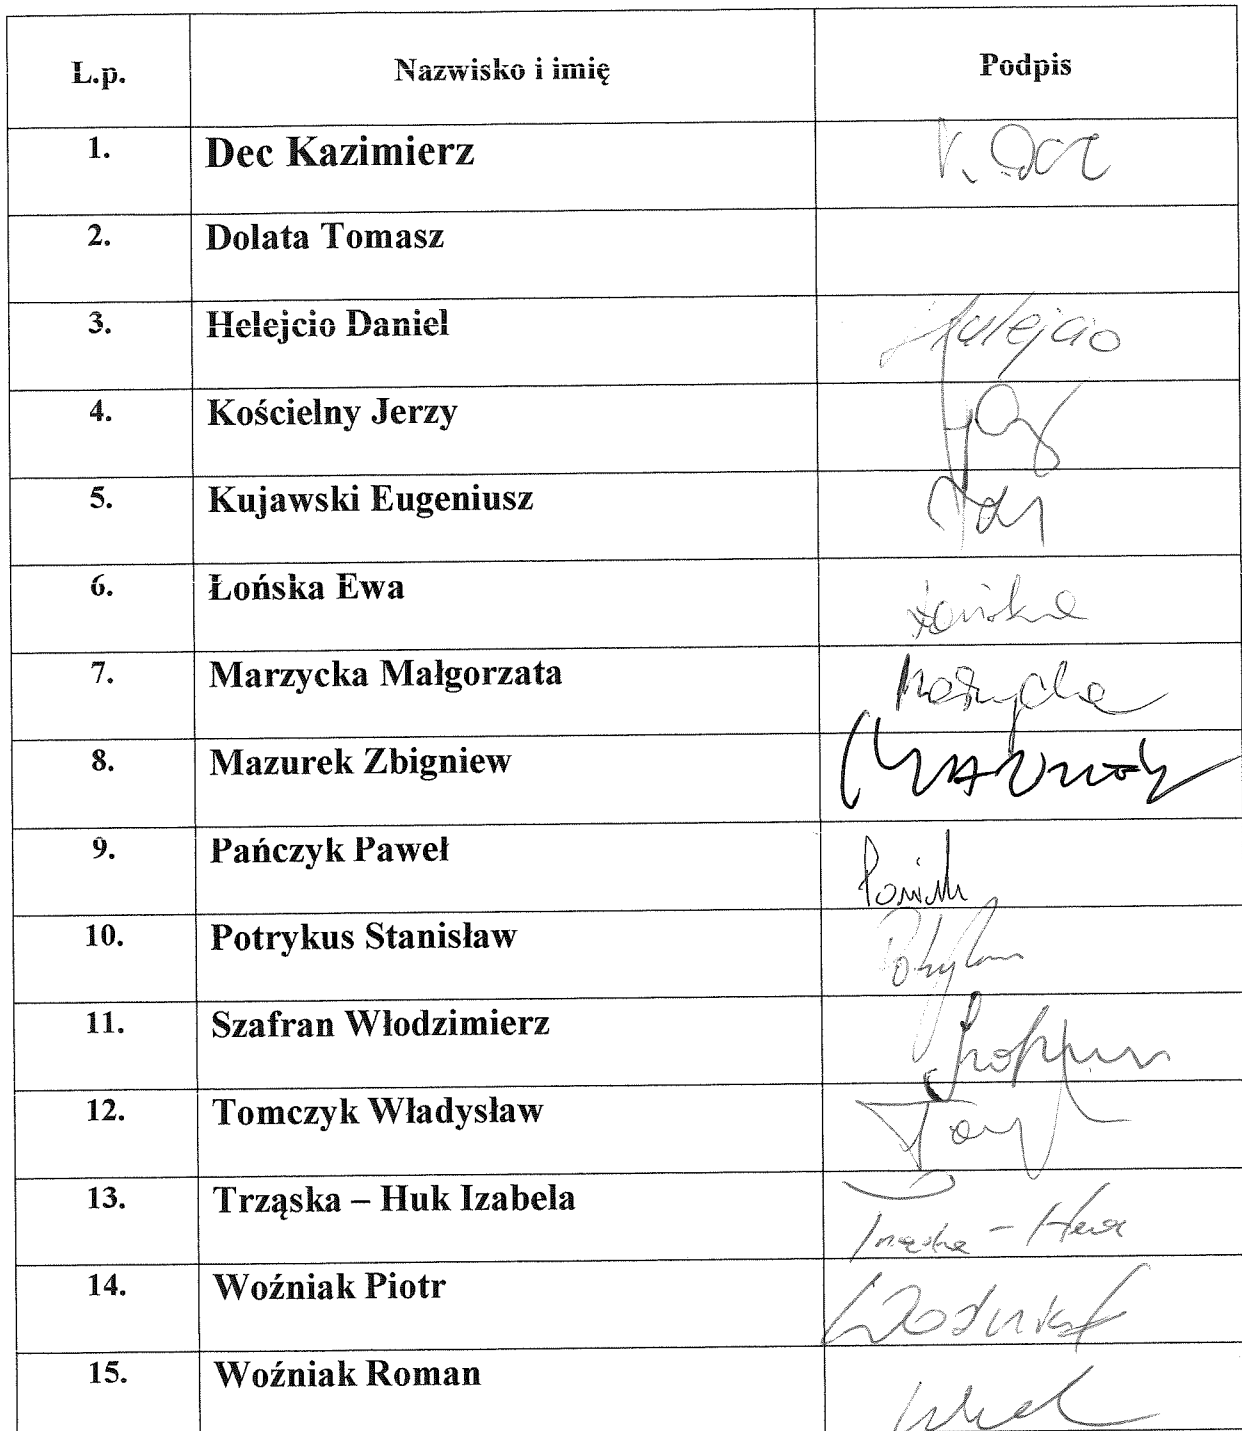 L.p. Nazwisko i imię Podpis
1. Dec Kazimierz K. Dec
2. Dolata Tomasz
3. Helejcio Daniel Helejcio
4. Kościelny Jerzy
5. Kujawski Eugeniusz
6. Łońska Ewa Łońska
7. Marzycka Małgorzata Marzycka
8. Mazurek Zbigniew Mazurek
9. Pańczyk Paweł
10. Potrykus Stanisław
11. Szafran Włodzimierz
12. Tomczyk Władysław
13. Trząska – Huk Izabela Trząska - Huk
14. Woźniak Piotr Woźniak
15. Woźniak Roman